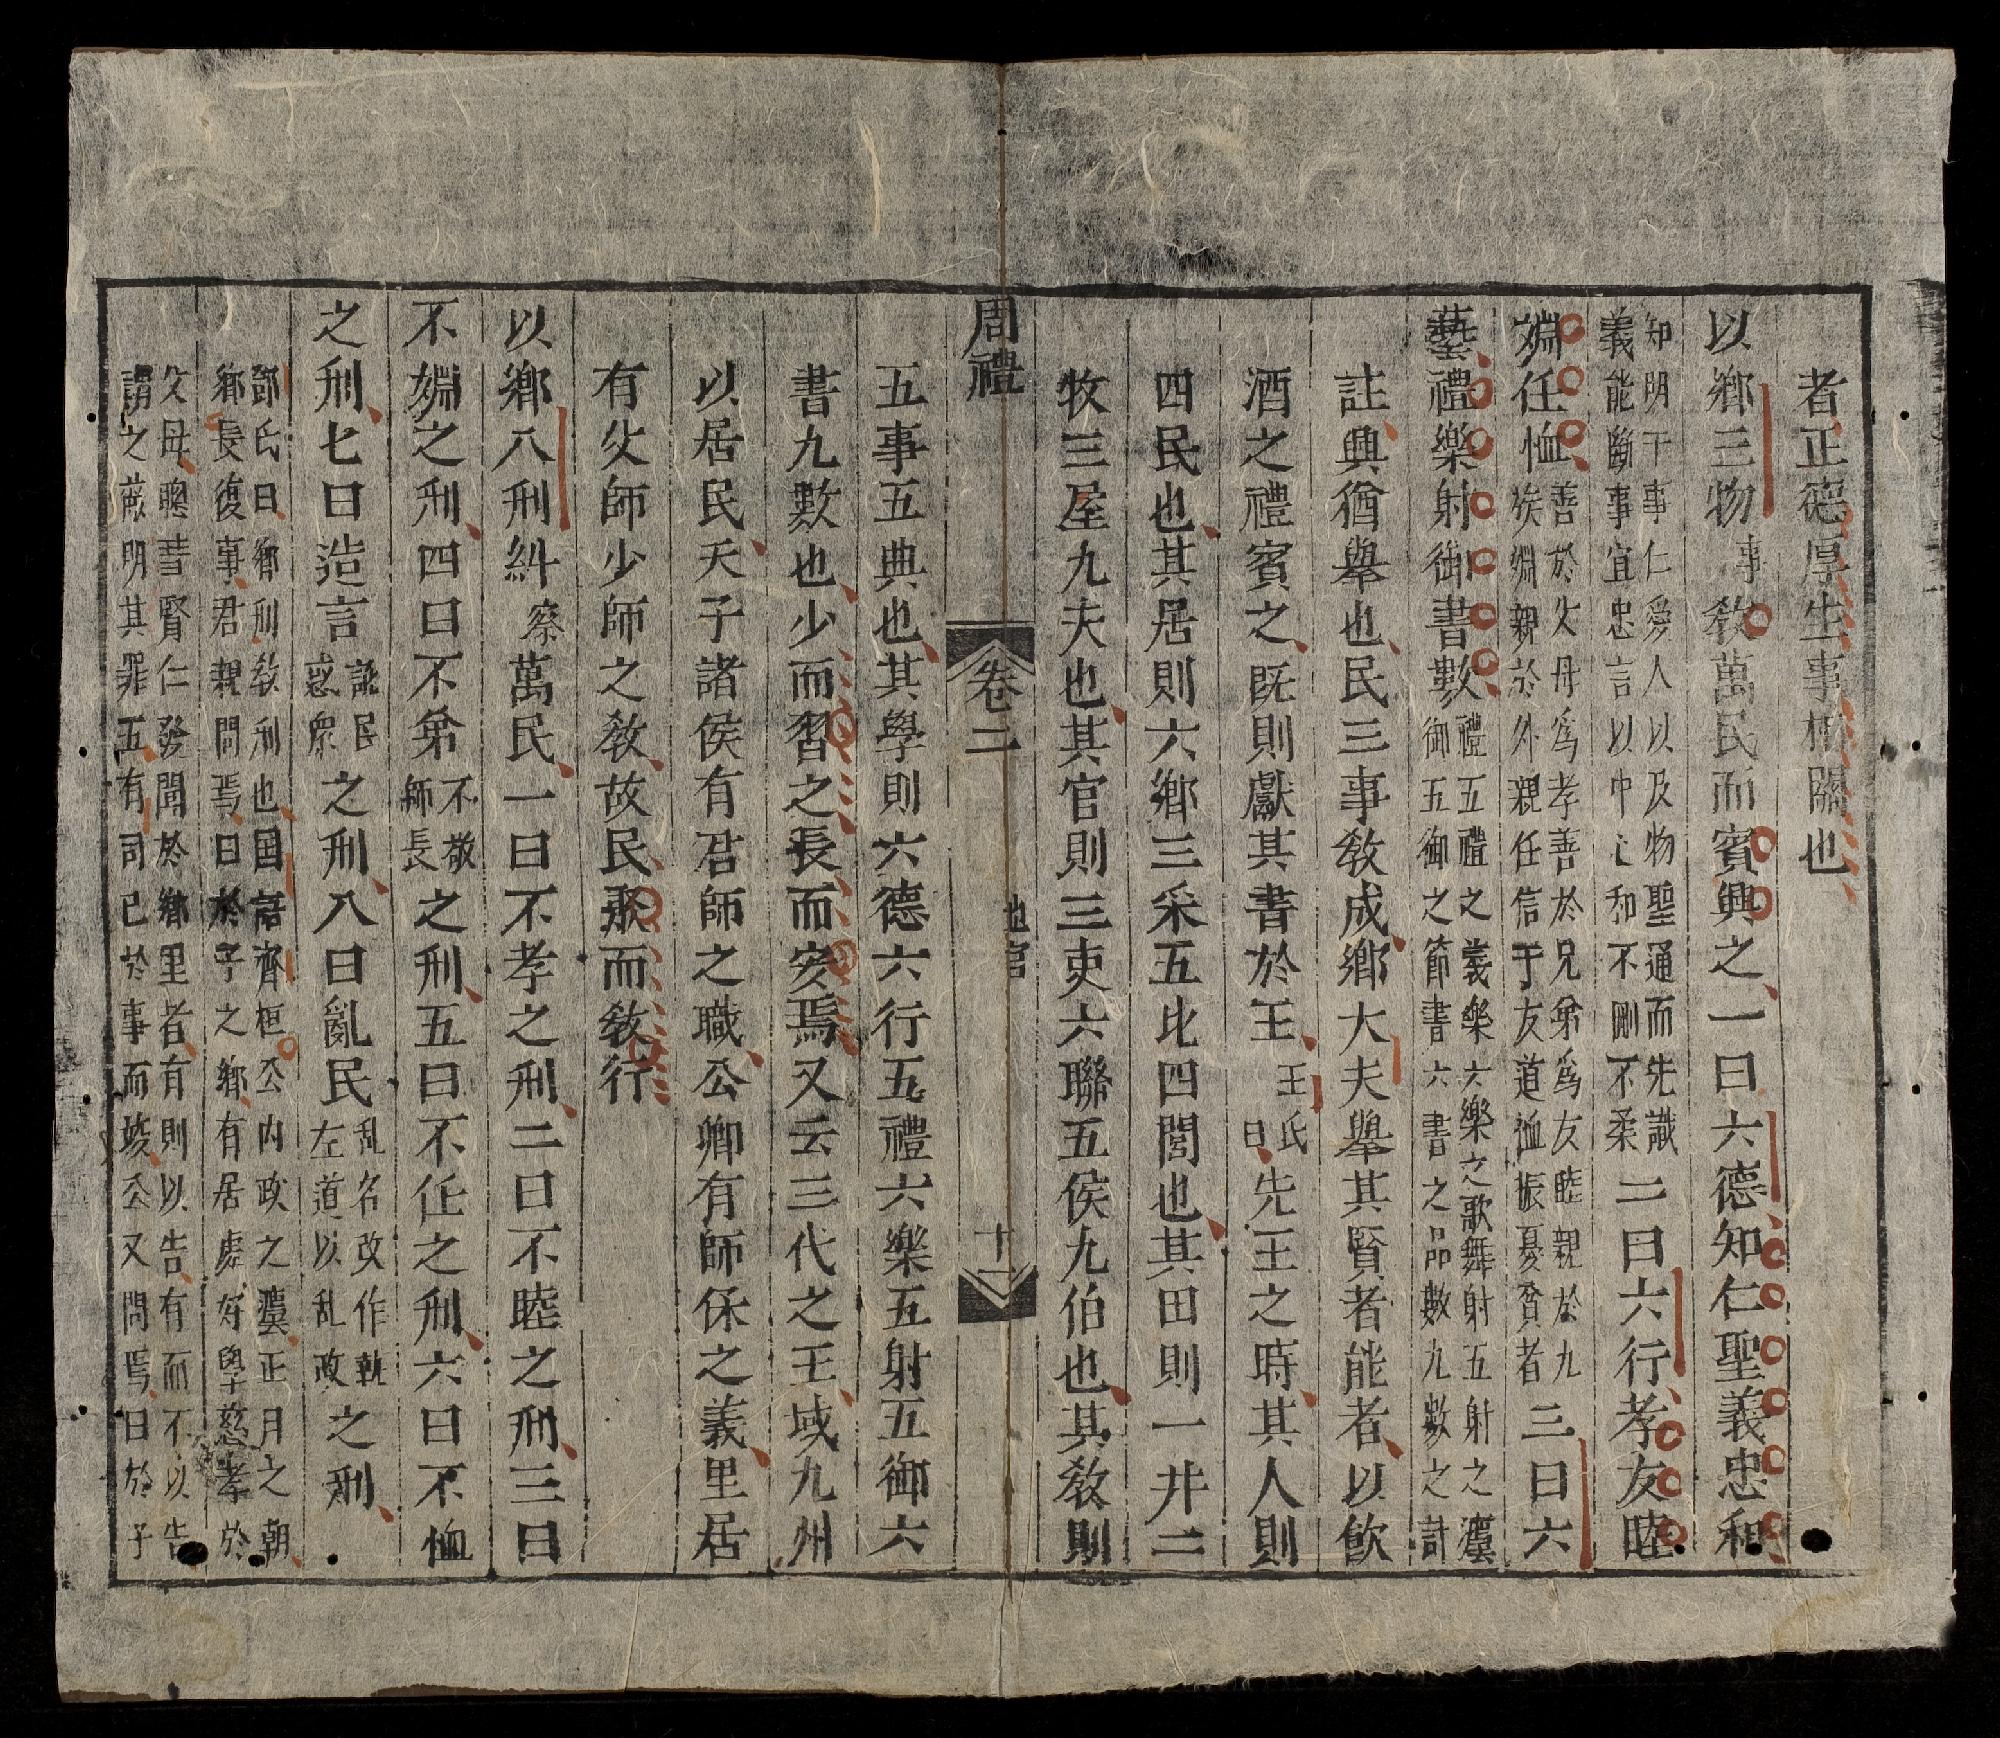 者正德厚生事相關也
以鄉三物事教萬民而賓興之一曰六德知仁聖義忠和
知明于事仁愛人以及物聖通而先識
義能斷事宜忠言以中心和不剛不柔
二曰六行孝友睦
婣任恤
善於父母爲孝善於兄弟爲友睦親於九
族婣親於外親任信于友道恤振憂貧者
三曰六
藝禮樂射御書數
禮五禮之義樂六樂之歌舞射五射之灋
御五御之節書六書之品數九數之計
註興猶舉也民三事敎成鄉大夫舉其賢者能者以飮
酒之禮賓之既則獻其書於王
王氏
曰
先王之時其人則
四民也其居則六鄉三采五比四閭也其田則一井二
牧三屋九夫也其官則三吏六聯五侯九伯也其敎則
周禮 卷二 地官 十一
五事五典也其學則六德六行五禮六樂五射五御六
書九數也少而習之長而安焉又云三代之王域九州
以居民天子諸侯有君師之職公卿有師保之義里居
有父師少師之敎故民服而敎行
以鄉八刑糾察萬民一曰不孝之刑二曰不睦之刑三曰
不婣之刑四曰不弟
不敬
師長
之刑五曰不任之刑六曰不恤
之刑七曰造言
訛民
惑衆
之刑八曰亂民
乱名改作執
左道以乱政
之刑
鄭氏曰鄉刑敎刑也国語齊桓公内政之灋正月之朝
鄉長復事君親問焉曰於子之鄉有居處好學慈孝於
父母聰慧賢仁發聞於鄉里者有則以告有而不以告
謂之蔽明其罪五有司已於事而竣公又問焉曰於子